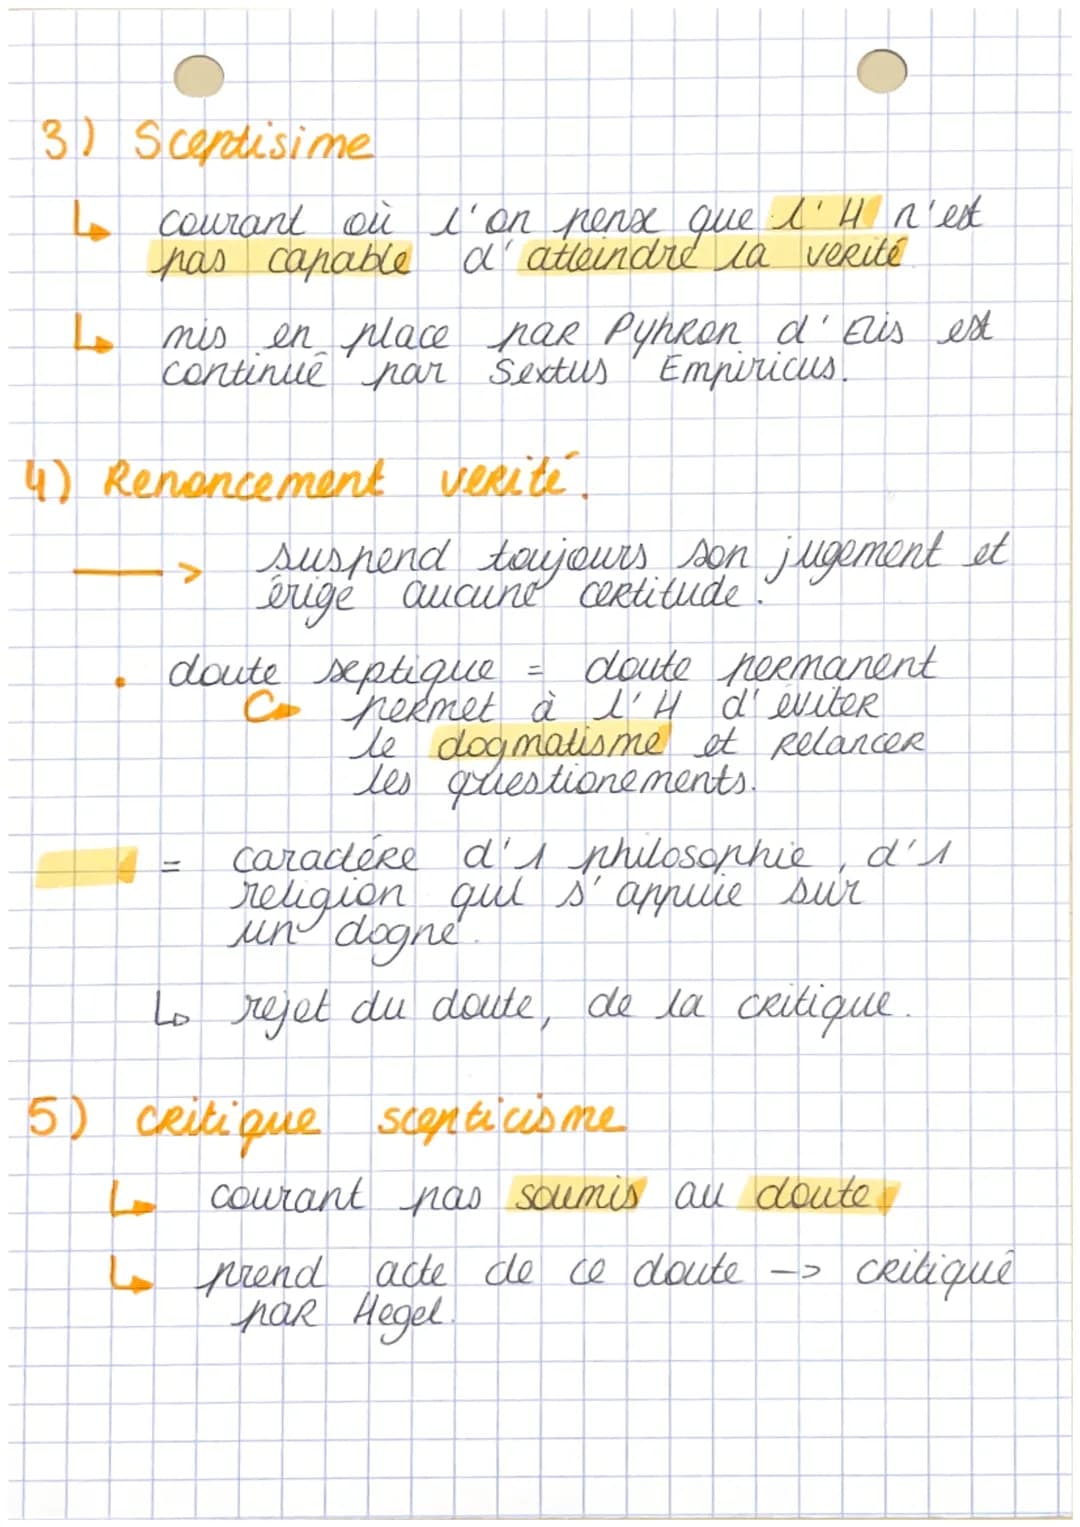 3) Sceptisime
↳ courant où l'on pense que l'H n'est
pas capable d'atteindre la verité
↳ mis en place par Pyhron d'Elis est
continué par Sextus Empiricus.
4) Renoncement verité.
→ suspend toujours son jugement et
érige aucune certitude.
• doute septique = doute permanent
↳ permet à l'H d'éviter
le dogmatisme et relancer
les questionements.
= caractére d'1 philosophie, d'1
religion qui s'appuie sur
un dogne.
↳ rejet du doute, de la critique.
5) critique scepticisme
↳ courant pas soumis au doute
↳ prend acte de ce doute --> critiqué
par Hegel.